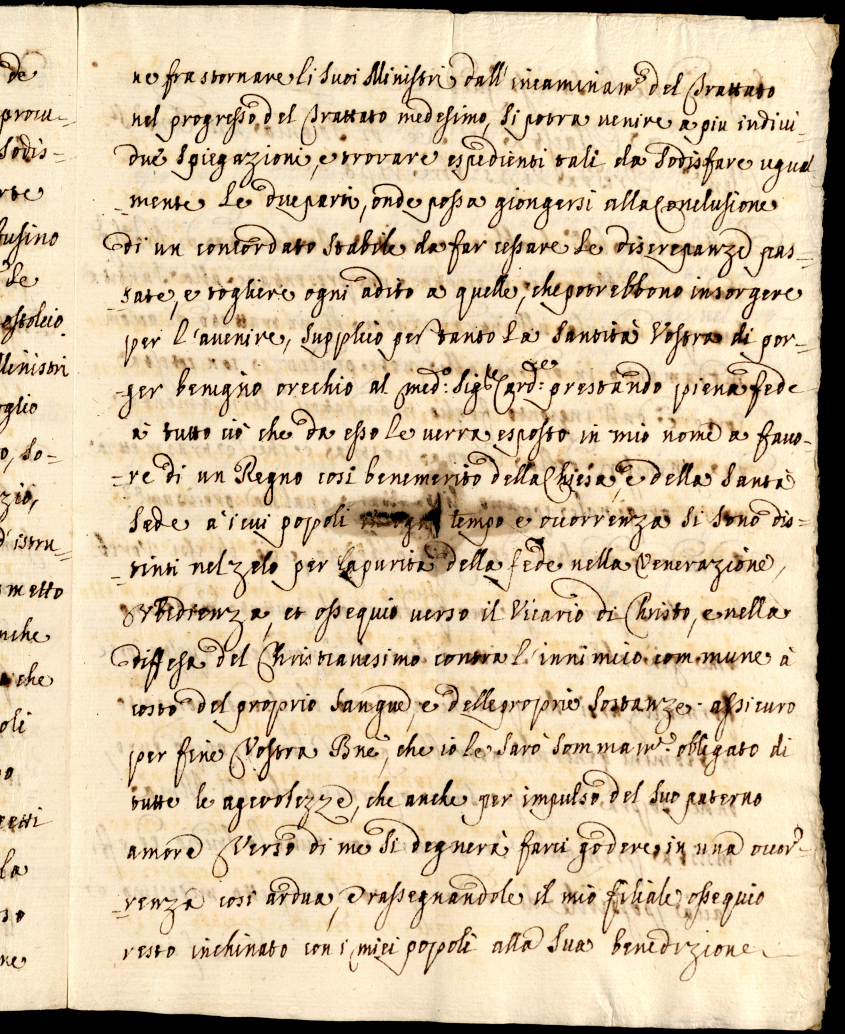 de
procu-
sodis-
rte
fusino
le
postolico
Ministri
oglio
o, so-
zio,
d'istru-
metto
nche
che
oli
o
etti
la
so
ne
ne frastornare li suoi Ministri dall'incaminam.to del Trattato
nel progresso del Trattato medesimo, si potra venire a piu indivi-
due spiegazioni, e trovare espedienti tali da sodisfare ugual
-mente le due parti, onde possa giongersi alla Conclusione
di un concordato stabile da far cessare le discrepanze pas-
sate, e togliere ogni adito a quelle, che potrebbono insorgere
per l'avenire, supplico per tanto la Santità Vostra di por-
-ger benigno orechio al med.o Sig.re Card.le prestando piena fede
à tutto ciò che da esso le verra esposto in mio nome a favo-
-re di un Regno cosi benemerito della Chiesa, e della Santa
Sede a i cui popoli in ogni tempo e ocorrenza si sono dis-
-tinti nel zelo per la purità della fede nella Venerazione,
Vbidienza, et ossequio verso il Vicario di Christo, e nella
diffesa del Christianesimo contra l'innimico commune à
costo del proprio sangue, e delle proprie sostanze. assicuro
per fine Vostra Bne, che io le sarò sommam.te obligato di
tutte le agevolezze, che anche per impulso del suo paterno
amore verso di me si degnerà farci godere in una ocor-
-renza cosi ardua, e rassegnandole il mio filiale ossequio
resto inchinato con i miei popoli alla sua benedizione